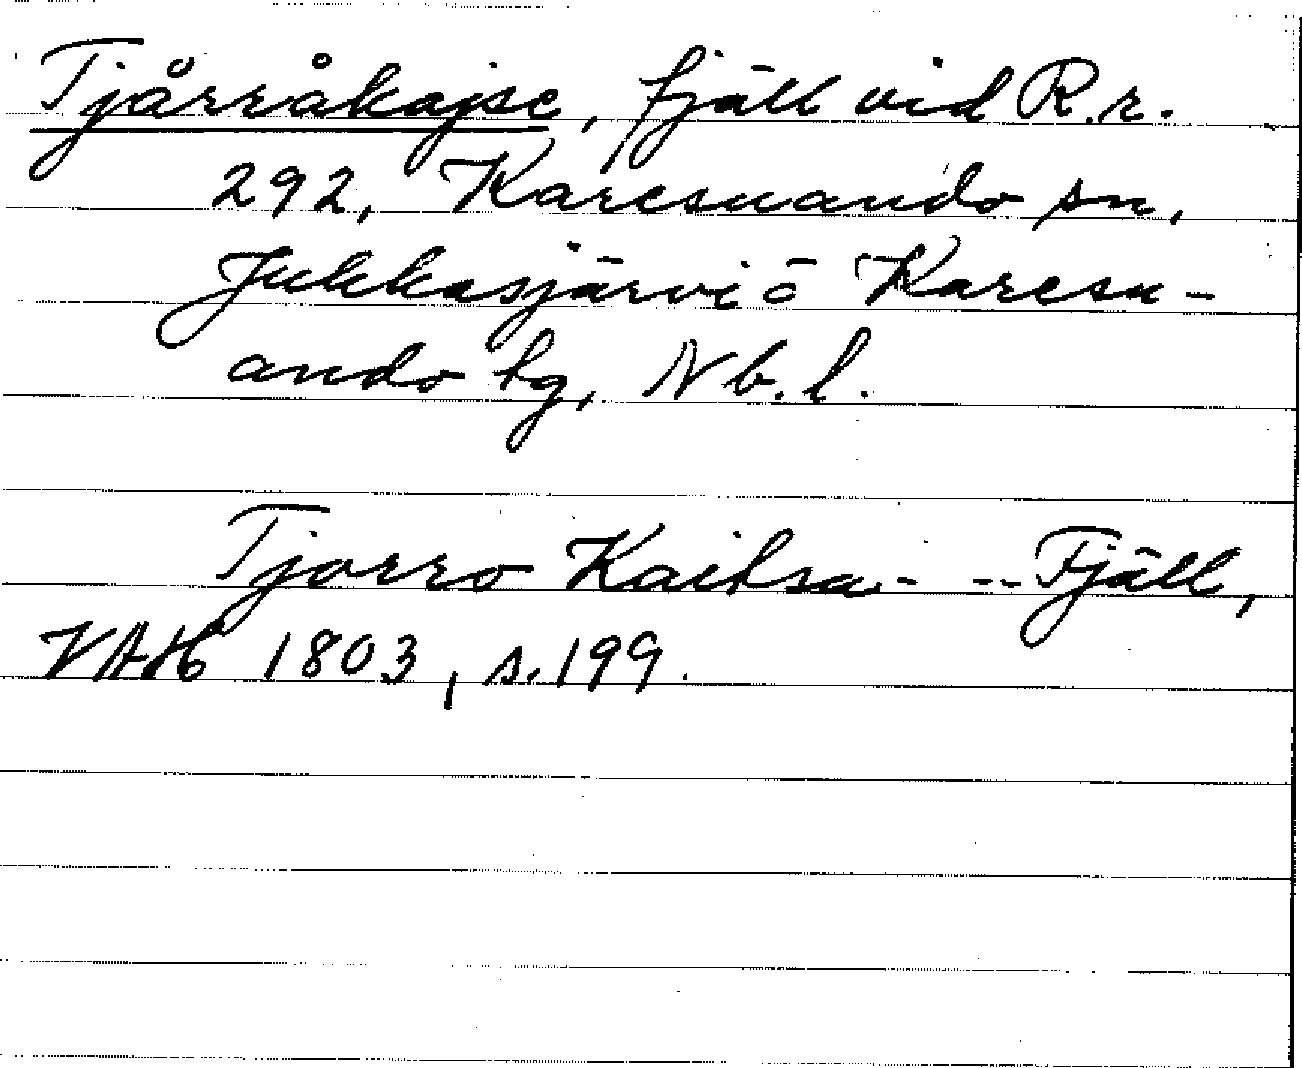 Tjårråkajse, fjäll vid R.r.
292, Karesuando sn,
Jukkasjärvi o Karesu-
ando tg, Nb.l.
Tjorro Kaitsa - -- Fjäll,
VAH 1803, s. 199.